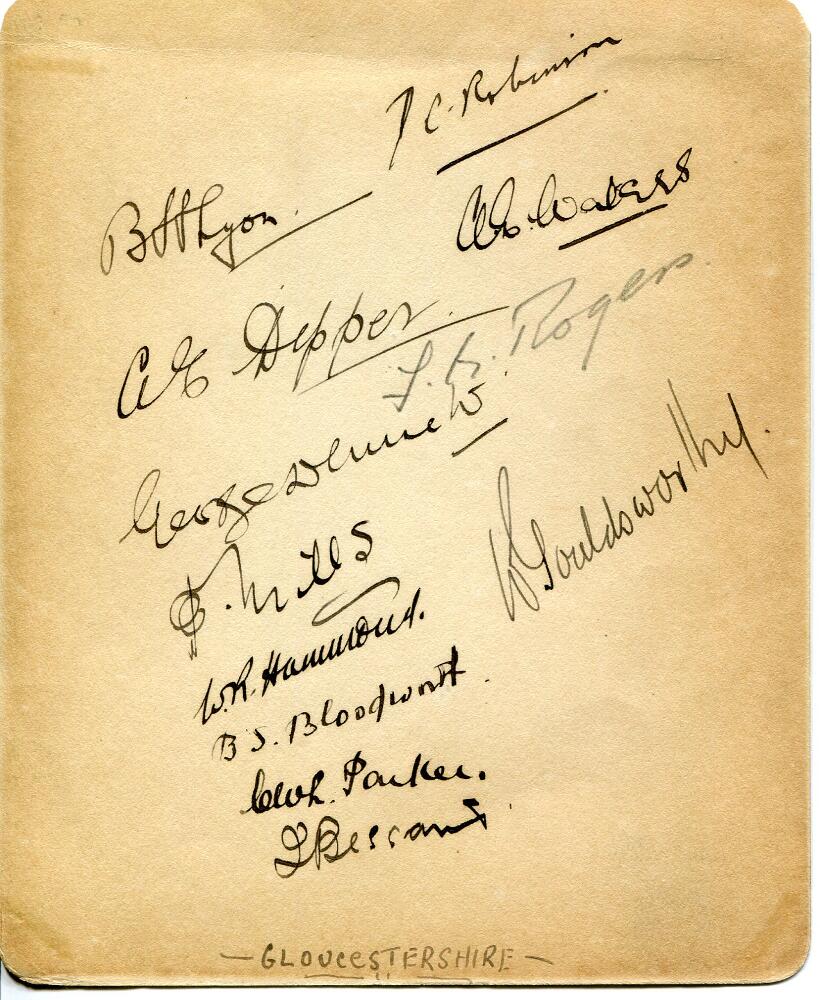 J C. Robinson
B H Lyon.
A E. Waters
A E Dipper.
F. G. Rogers.
George Dennett
P. Mills
W Gouldsworthy.
W.R. Hammond.
B S. Bloodworth.
C W L. Parker.
J Bessant.
— GLOUCESTERSHIRE —